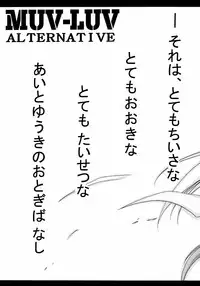 MUV-LUV
ALTERNATIVE
― それは、とてもちいさな
とてもおおきな
とても たいせつな
あいとゆうきのおとぎばなし